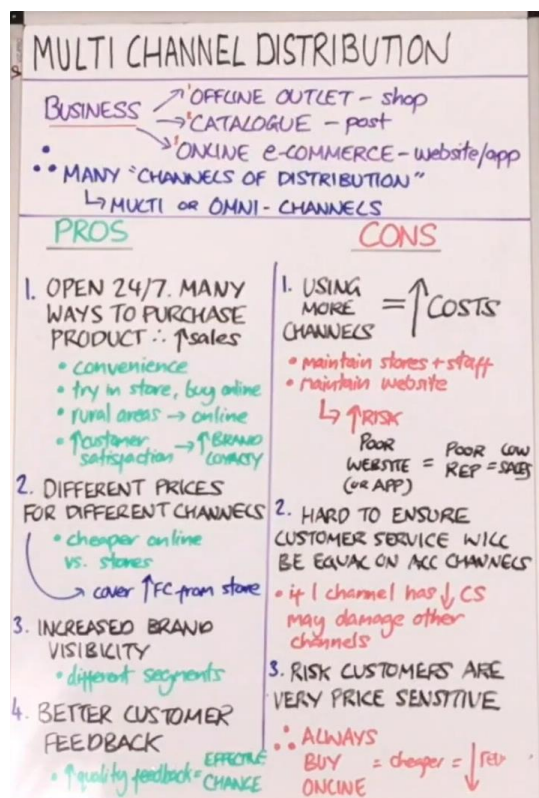 MULTI CHANNEL DISTRIBUTION
BUSINESS → OFFLINE OUTLET - shop
→ CATALOGUE - post
→ ONLINE e-COMMERCE - website/app
∴ MANY "CHANNELS OF DISTRIBUTION"
↳ MULTI OR OMNI-CHANNELS
PROS
1. OPEN 24/7. MANY
WAYS TO PURCHASE
PRODUCT ∴ ↑sales
• convenience
• try in store, buy online
• rural areas → online
• ↑customer satisfaction → ↑BRAND LOYALTY
2. DIFFERENT PRICES
FOR DIFFERENT CHANNELS
• cheaper online
vs. stores
→ cover ↑FC from store
3. INCREASED BRAND
VISIBILITY
• different segments
4. BETTER CUSTOMER
FEEDBACK
• ↑quality feedback = EFFECTIVE CHANGE
CONS
1. USING
MORE
CHANNELS = ↑COSTS
• maintain stores + staff
• maintain website
↳ ↑RISK
POOR
WEBSITE
(OR APP) = POOR REP = LOW SALES
2. HARD TO ENSURE
CUSTOMER SERVICE WILL
BE EQUAL ON ALL CHANNELS
• if 1 channel has ↓CS
may damage other
channels
3. RISK CUSTOMERS ARE
VERY PRICE SENSITIVE
∴ ALWAYS
BUY
ONLINE = cheaper = ↓